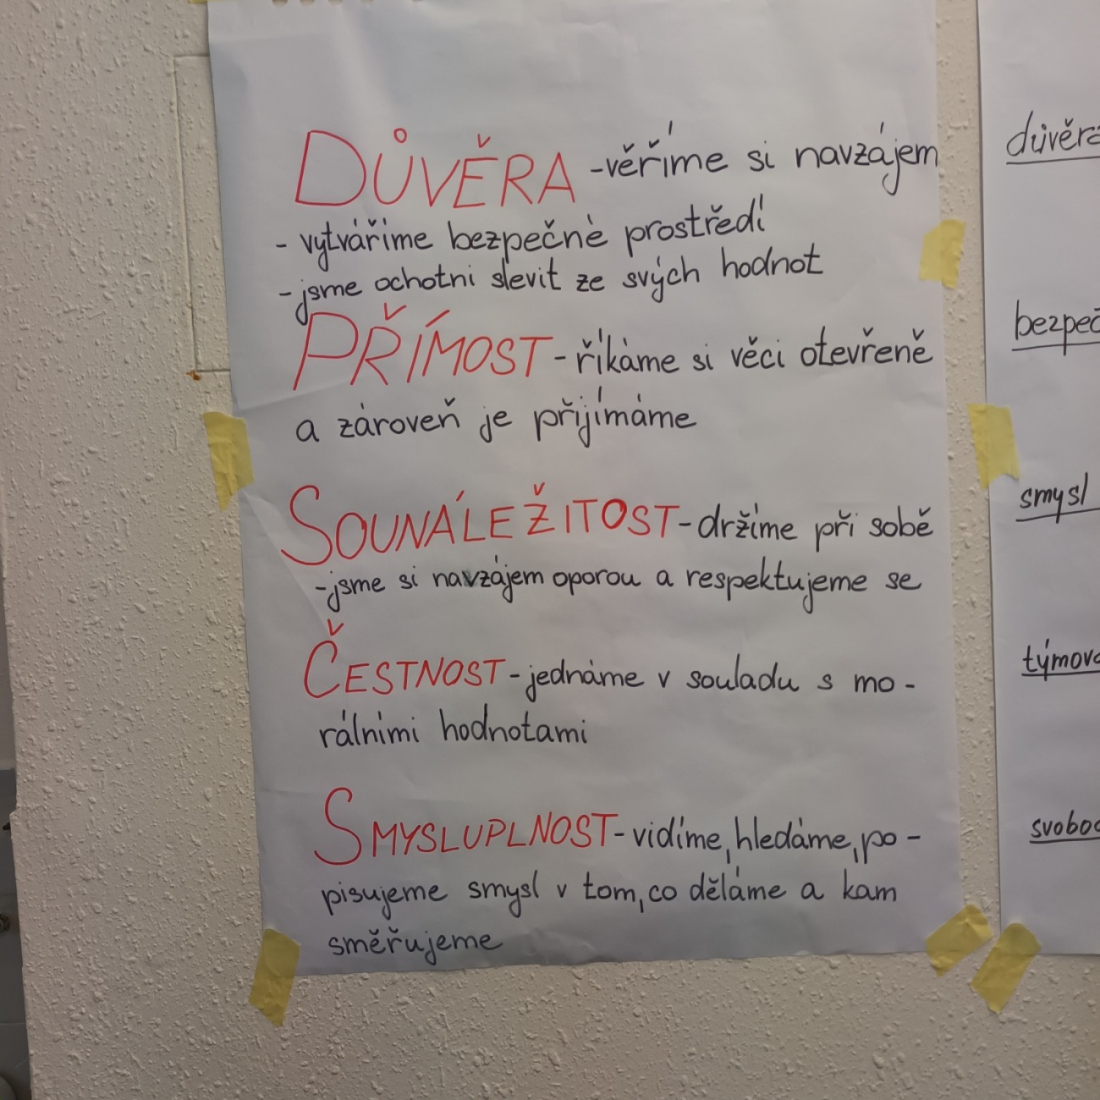 DŮVĚRA - věříme si navzájem
- vytváříme bezpečné prostředí
- jsme ochotni slevit ze svých hodnot
PŘÍMOST - říkáme si věci otevřeně
a zároveň je přijímáme
SOUNÁLEŽITOST - držíme při sobě
- jsme si navzájem oporou a respektujeme se
ČESTNOST - jednáme v souladu s mo -
rálními hodnotami
SMYSLUPLNOST - vidíme, hledáme, po -
pisujeme smysl v tom, co děláme a kam
směřujeme
důvěra
bezpeč
smysl
týmov
svobod